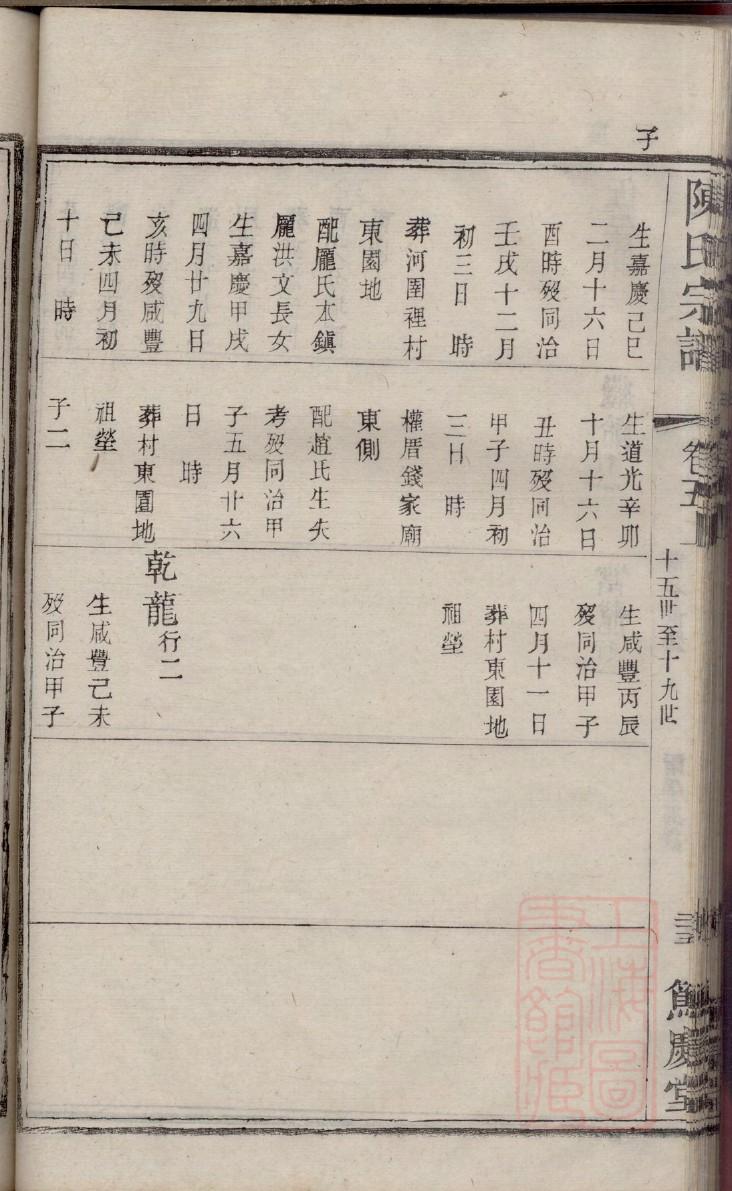 子
陳氏宗譜
卷五
十五世至十九世
生嘉慶己巳
二月十六日
酉時歿同治
壬戌十二月
初三日　時
葬河圍裡村
東園地
配龎氏太鎮
龎洪文長女
生嘉慶甲戌
四月廿九日
亥時歿咸豐
己未四月初
十日　時
生道光辛卯
十月十六日
丑時歿同治
甲子四月初
三日　時
權厝錢家廟
東側
配趙氏生失
考歿同治甲
子五月廿六
日　時
葬村東園地
祖塋
子二
生咸豐丙辰
歿同治甲子
四月十一日
葬村東園地
祖塋
乾龍行二
生咸豐己未
歿同治甲子
慶堂
上海圖書館藏